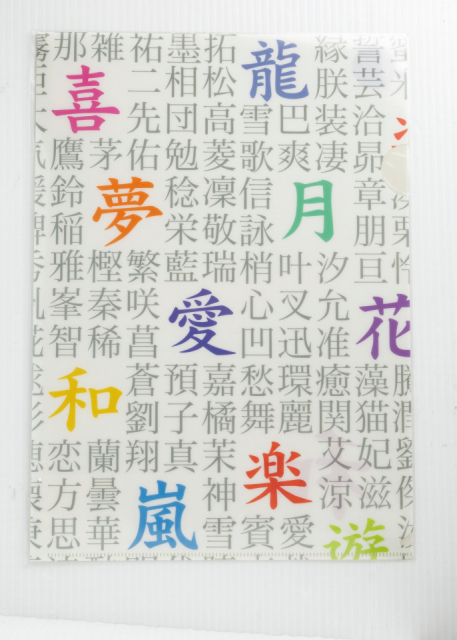 那 雑 祐 墨 拓 龍 縁 誓
喜 二 相 松 朕 芸 米
先 団 高 雪 巴 装 洽
鷹 茅 佑 勉 菱 歌 爽 凄 昴
鈴 夢 稔 凜 信 月 章
稲 栄 敬 詠 朋 栗
雅 樫 繁 藍 瑞 梢 叶 汐 亘
峯 秦 咲 愛 心 又 允 花
智 稀 菖 凹 迅 准
和 蒼 預 嘉 愁 環 癒 藻
劉 子 橘 舞 麗 関 猫 潤
恋 蘭 翔 真 茉 楽 艾 妃 劉
方 曇 嵐 神 涼 滋
思 華 雪 賓 愛 遊